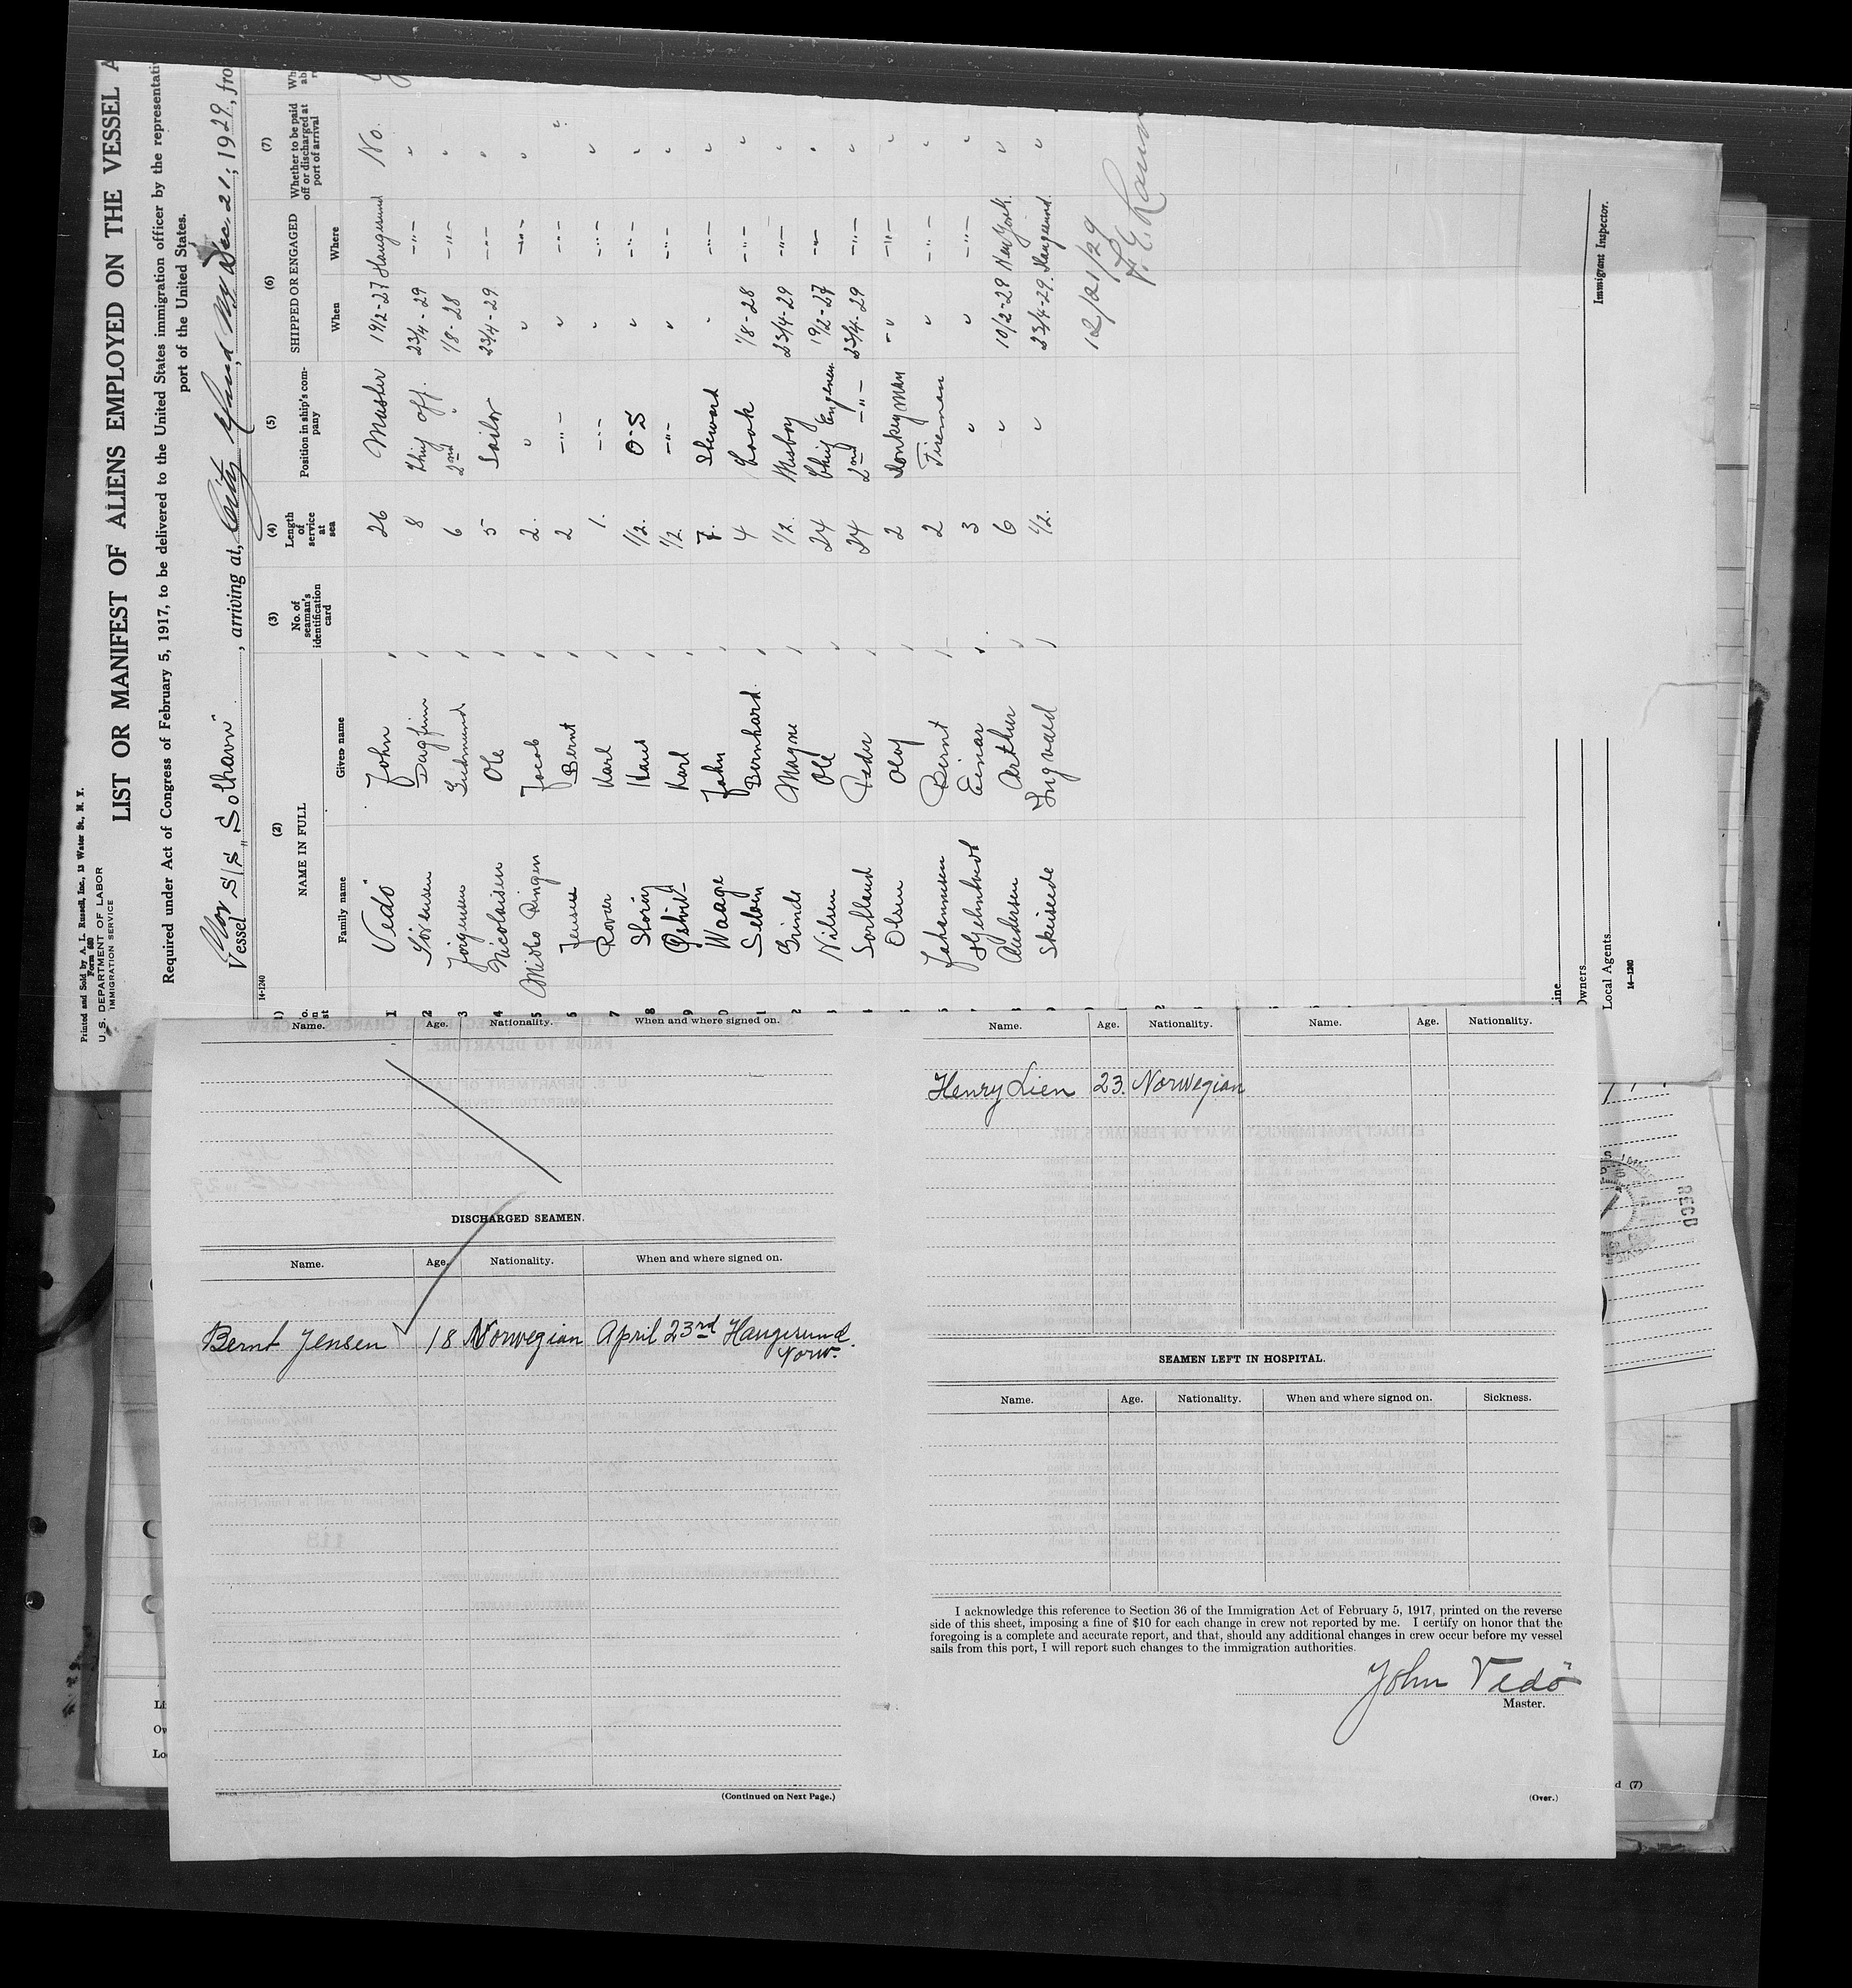 Printed and Sold by A. L. Russell, Inc., 13 Water St., N. Y.
Form 680
U. S. DEPARTMENT OF LABOR
IMMIGRATION SERVICE
LIST OR MANIFEST OF ALIENS EMPLOYED ON THE VESSEL A
Required under Act of Congress of February 5, 1917, to be delivered to the United States immigration officer by the representativ
port of the United States.
Nor
Vessel S/S "Solhavn", arriving at, Dec. 21, 1929, fro
14-1240
(2) (3) (4) (5) (6) (7)
NAME IN FULL No. of seaman's identification card Length of service at sea Position in ship's company SHIPPED OR ENGAGED Whether to be paid off or discharged at port of arrival
Family name Given name When Where
1 Vedö John 26 Master 19/2-27 Haugesund No.
2 Sörensen Dagfinn 8 Chief Off. 23/4-29 -"-
3 Jörgensen Gudmund 6 2nd " 1/8-28 -"-
4 Nicolaisen Ole 5 Sailor 23/4-29 -"-
5 Jacob 2. " " -"-
6 Jensen Bernt 2 -"- " -"-
7 Rovær Karl 1. -"- " -"-
8 Hans 1/2. O-S " -"-
9 Karl 1/2. -"- " -"-
0 Waage John 7. Steward " -"-
1 Bernhard 4 Cook 1/8-28 -"-
2 Grinde Magne 1/2. Messboy 23/4-29 -"-
3 Nilsen Ole 24 Chief Engeneer 19/2-27 -"-
4 Sortland Peder 24 2nd -"- 23/4-29 -"-
Olsen Olaf 2 Donkeyman -"- -"-
Johannesen Bernt 2 Firemen " -"-
Einar 3 " " -"-
Andersen Arthur 6 " 10/2-29 New York.
Skeisede Ingvald 1/2. " 23/4-29. Haugesund.
12/21/29
Immigrant Inspector.
Line
Owners
Local Agents
14-1240
Name. Age. Nationality. When and where signed on.
DISCHARGED SEAMEN.
Name. Age. Nationality. When and where signed on.
Bernt Jensen 18 Norwegian April 23rd Haugesund.
Norw.
(Continued on Next Page.)
Name. Age. Nationality. Name. Age. Nationality.
Henry Lien 23. Norwegian
SEAMEN LEFT IN HOSPITAL.
Name. Age. Nationality. When and where signed on. Sickness.
I acknowledge this reference to Section 36 of the Immigration Act of February 5, 1917, printed on the reverse
side of this sheet, imposing a fine of $10 for each change in crew not reported by me. I certify on honor that the
foregoing is a complete and accurate report, and that, should any additional changes in crew occur before my vessel
sails from this port, I will report such changes to the immigration authorities.
John Vedö
Master.
(Over.)
RECD
d (7)
Li
Ow
Lo